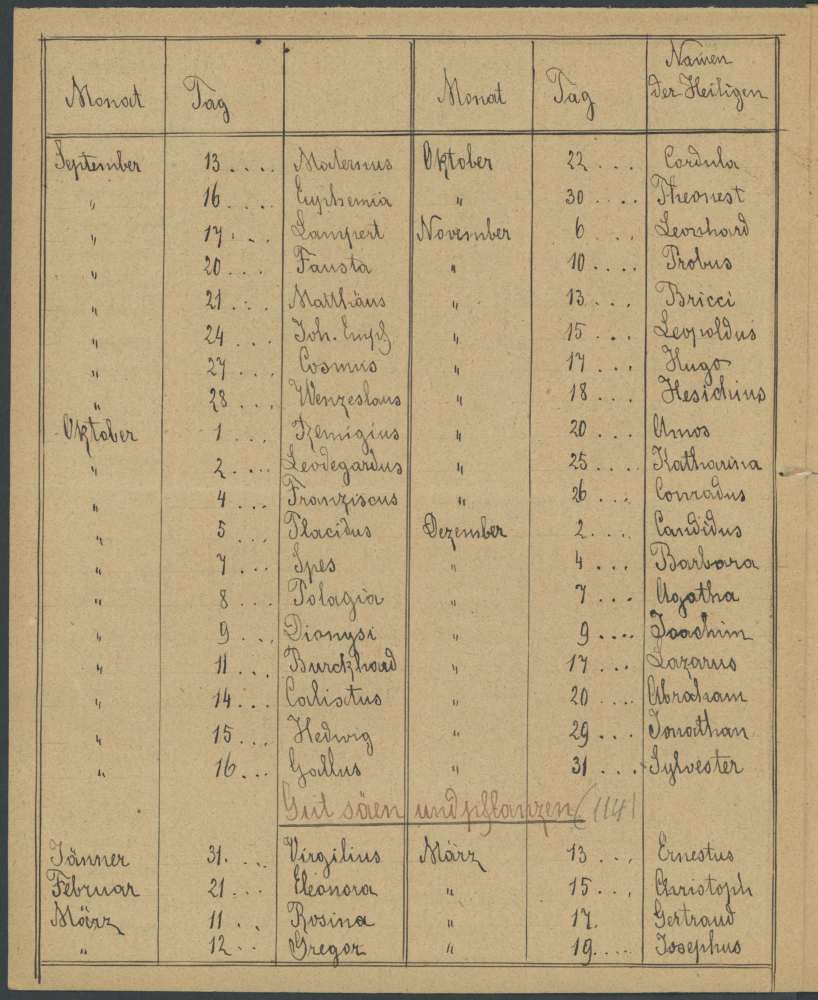 Monat Tag Monat Tag Namen der Heiligen
September 13 .... Maternus Oktober 22 ... Cordula
" 16 .... Euphemia " 30 .... Theonest
" 17 ... Lampert November 6 ... Leonhard
" 20 ... Fausta " 10 .... Probus
" 21 ... Matthäus " 13 ... Bricci
" 24 ... Joh. Empf " 15 ... Leopoldus
" 27 ... Cosmus " 17 ... Hugo
" 28 ... Wenzeslaus " 18 ... Hesichius
Oktober 1 ... Remigius " 20 ... Amos
" 2 .... Leodegardus " 25 .... Katharina
" 4 ... Franziscus " 26 ... Conradus
" 5 ... Placidus Dezember 2 .... Candidus
" 7 ... Spes " 4 ... Barbara
" 8 ... Polagia " 7 ... Agatha
" 9 ... Dionysi " 9 .... Joachim
" 11 ... Burckhard " 17 ... Lazarus
" 14 ... Calixtus " 20 ... Abraham
" 15 ... Hedwig " 29 ... Jonathan
" 16 ... Gallus " 31 ... Sylvester
Gut säen und pflanzen (114)
Jänner 31. ... Virgilius März 13 ... Ernestus
Februar 21 ... Eleonora " 15 ... Christoph
März 11 .. Rosina " 17. Gertraud
" 12 .. Gregor " 19 .... Josephus